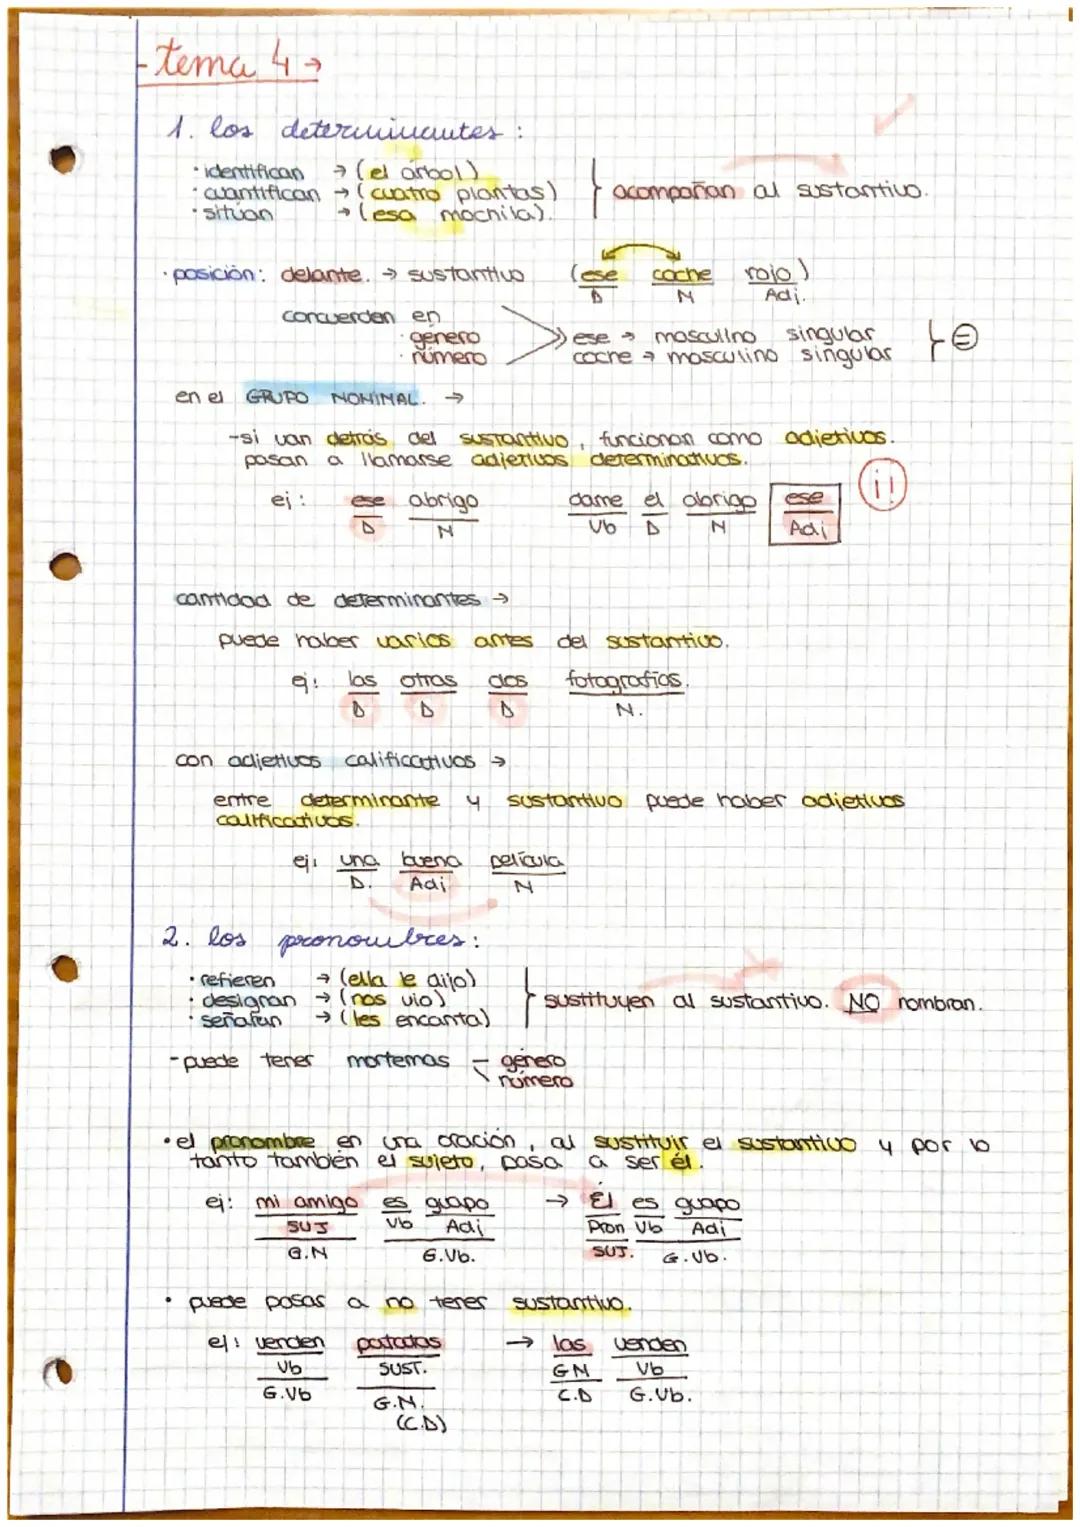 -tema 4 →
1. los determinantes :
· identifican → (el árbol)
· cuantifican → (cuatro plantas) } acompañan al sustantivo.
· sitúan → (esa mochila).
· posición: delante. → sustantivo (ese coche rojo)
D N Adj.
concuerdan en
· género ese → masculino singular } =
· número coche → masculino singular
en el GRUPO NOMINAL. →
-si van detrás del sustantivo, funcionan como adjetivos.
pasan a llamarse adjetivos determinativos.
ej: ese abrigo dame el abrigo ese ¡!
D N Vb D N Adj
cantidad de determinantes →
puede haber varios antes del sustantivo.
ej: las otras dos fotografías.
D D D N.
con adjetivos calificativos →
entre determinante y sustantivo puede haber adjetivos
calificativos.
ej: una buena película
D. Adj N
2. los pronombres :
· refieren → (ella le dijo)
· designan → (nos vio) } sustituyen al sustantivo. NO nombran.
· señalan → (les encanta)
-puede tener morfemas - género
número
• el pronombre en una oración, al sustituir el sustantivo y por lo
tanto también el sujeto, pasa a ser él.
ej: mi amigo es guapo → Él es guapo
SUJ Vb Adj Pron Vb Adj
G.N G.Vb. SUJ. G.Vb.
• puede pasar a no tener sustantivo.
ej: venden patatas → las venden
Vb SUST. GN Vb
G.Vb G.N. C.D G.Vb.
(C.D)